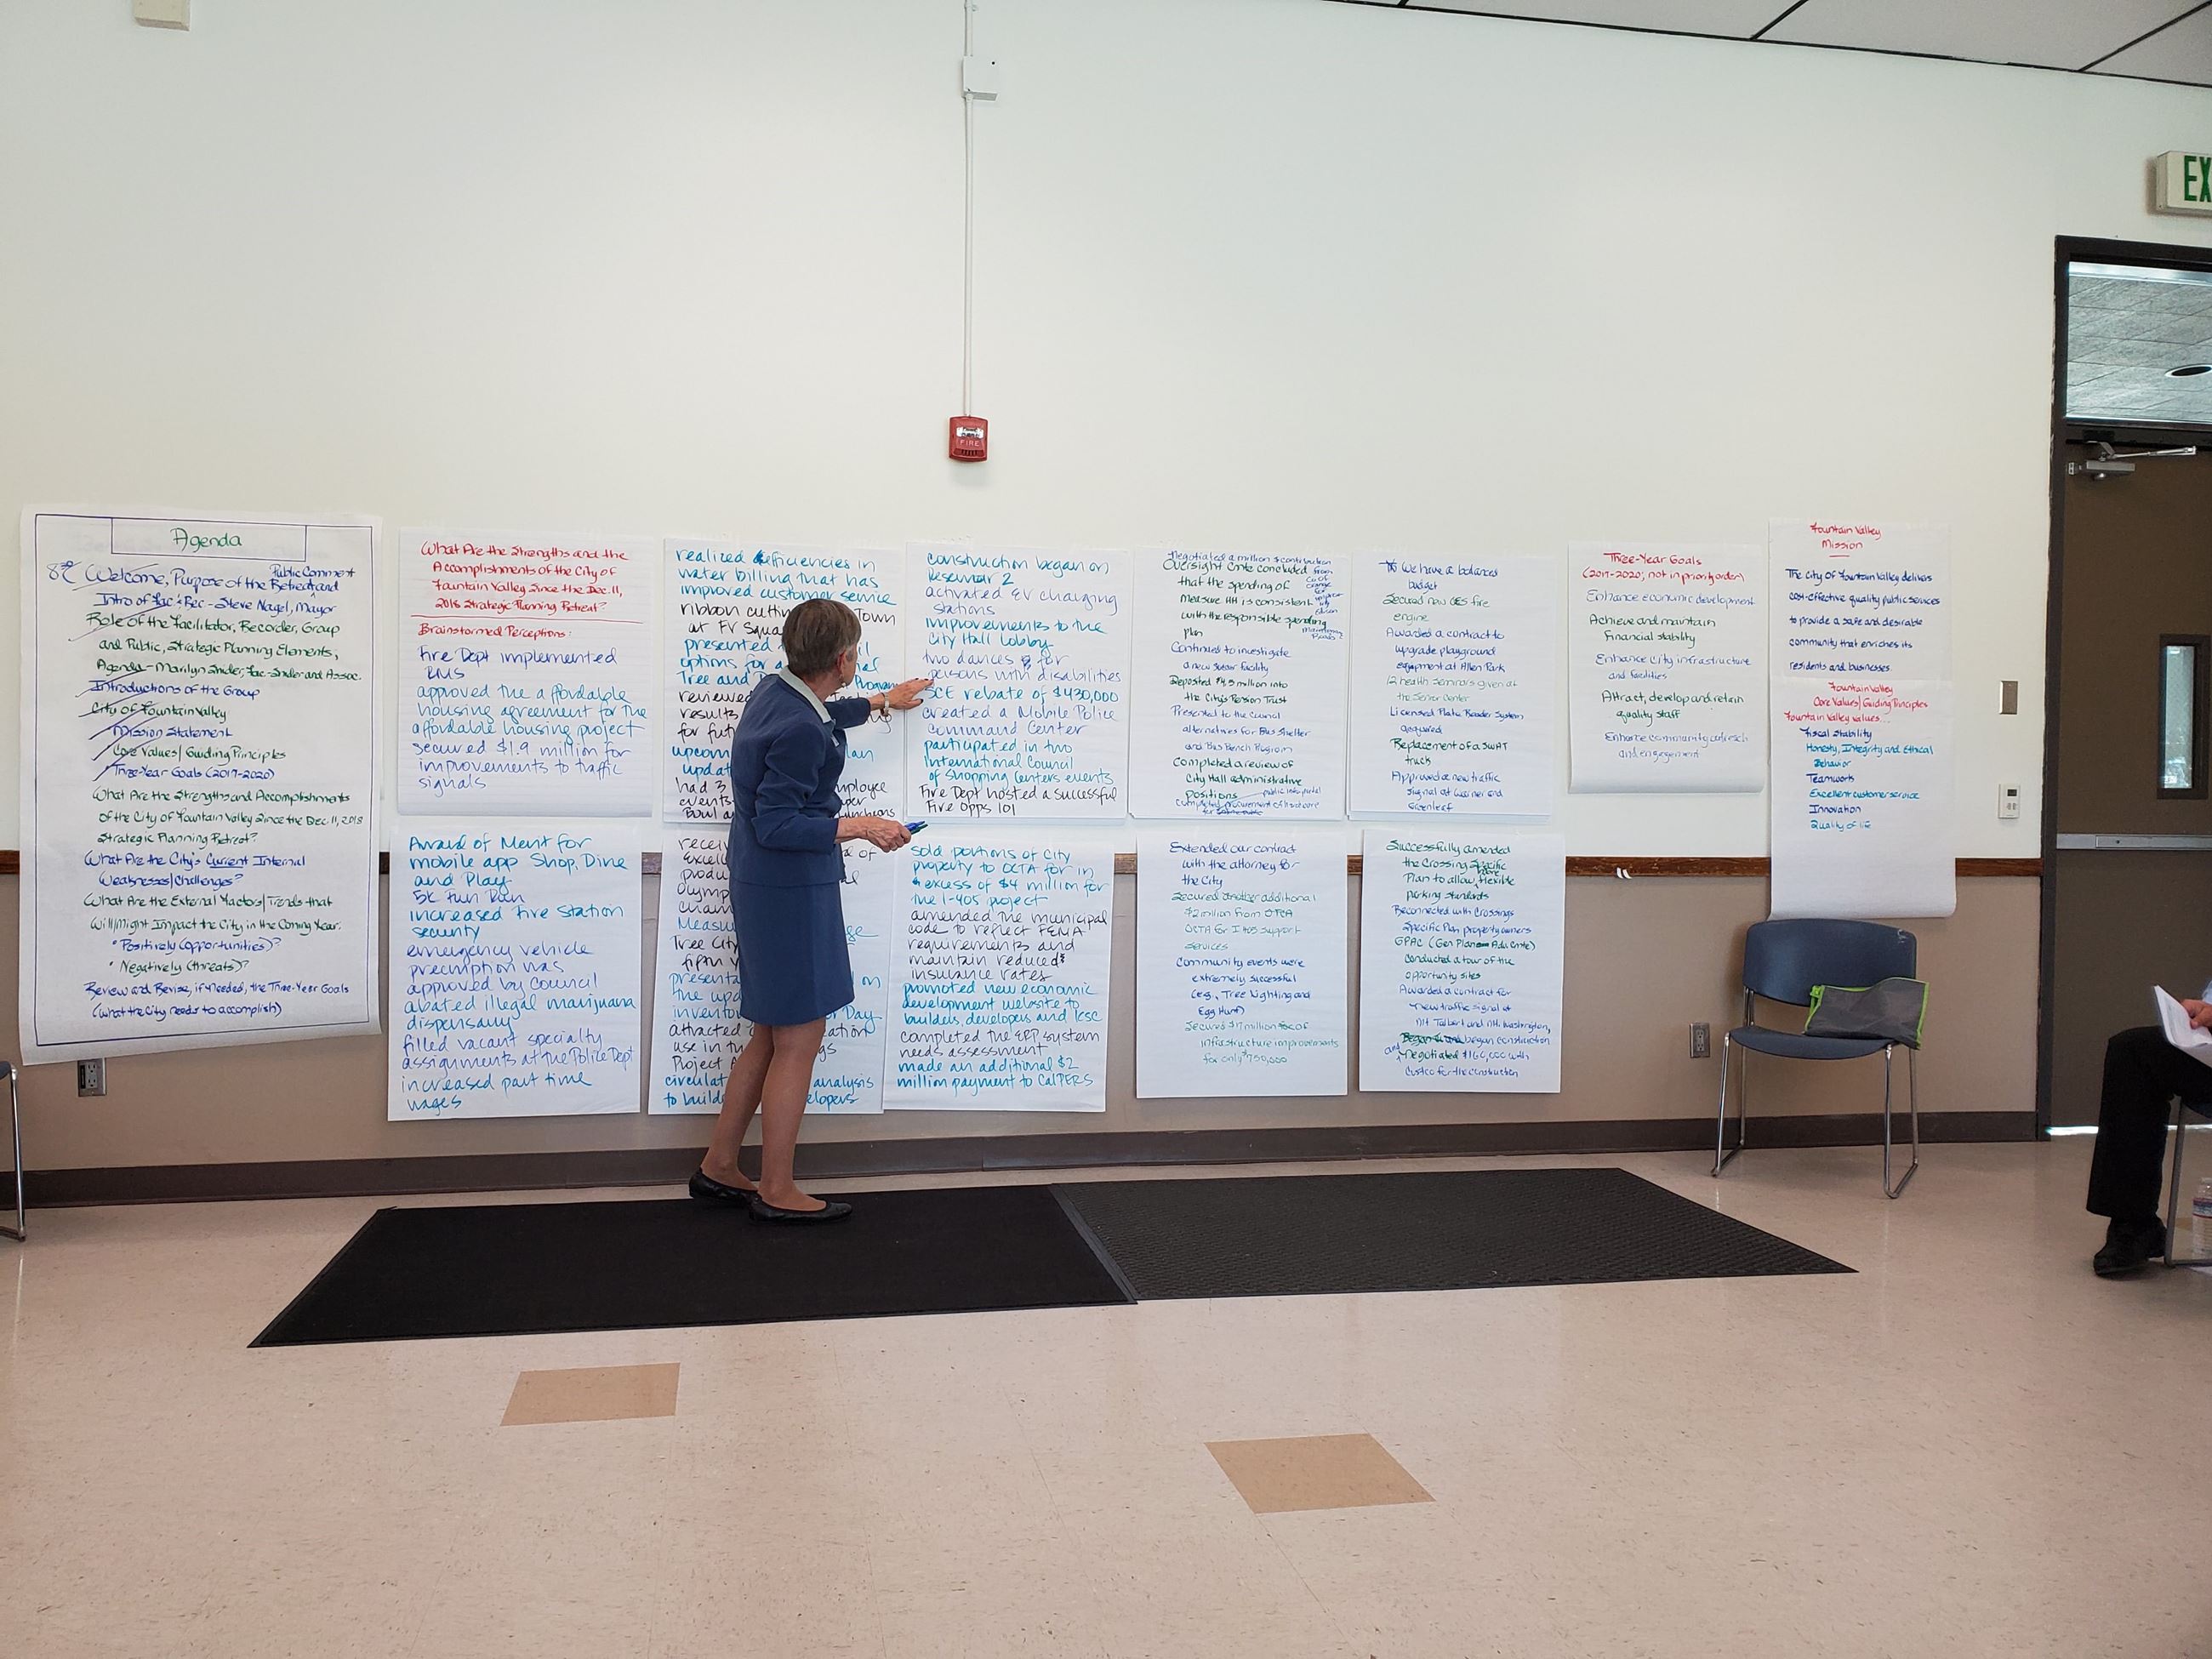 EX
FIRE
Agenda
Public Comment
Welcome, Purpose of the Retreat, and
Intro of Fac & Rec - Steve Nagel, Mayor
Role of the Facilitator, Recorder, Group
and Public, Strategic Planning Elements,
Agenda - Marilyn Snider, Fac - Snider and Assoc.
Introductions of the Group
City of Fountain Valley
Mission Statement
Core Values/Guiding Principles
Three-Year Goals (2017-2020)
What Are the Strengths and Accomplishments
of the City of Fountain Valley Since the Dec. 11, 2018
Strategic Planning Retreat?
What Are the City's Current Internal
Weaknesses/Challenges?
What Are the External Factors/Trends that
Will/Might Impact the City in the Coming Year:
• Positively (opportunities)?
• Negatively (threats)?
Review and Revise, if Needed, the Three-Year Goals
(what the City needs to accomplish)
What Are the Strengths and the
Accomplishments of the City of
Fountain Valley Since the Dec. 11,
2018 Strategic Planning Retreat?
Brainstormed Perceptions:
Fire Dept implemented
RMS
approved the affordable
housing agreement for the
affordable housing project
secured $1.9 million for
improvements to traffic
signals
Award of Merit for
mobile app Shop, Dine
and Play
5K Fun Run
increased Fire Station
security
emergency vehicle
preemption was
approved by Council
abated illegal marijuana
dispensary
filled vacant specialty
assignments at the Police Dept
increased part time
wages
realized efficiencies in
water billing that has
improved customer service
ribbon Town
at FV
presented
options for a
Tree and Program
reviewed
results
for
had 3 mployee
events
Bowl
of
Tree City
the Day
attracted
use in
Project
analysis
to elopers
construction began on
Reservoir 2
activated EV charging
stations
improvements to the
City Hall lobby
two dances for
persons with disabilities
SCE rebate of $430,000
created a Mobile Police
Command Center
participated in two
International Council
of Shopping Centers events
Fire Dept hosted a successful
Fire Opps 101
sold portions of City
property to OCTA for in
excess of $4 million for
the I-405 project
amended the municipal
code to reflect FEMA
requirements and
maintain reduced
insurance rates
promoted new economic
development website to
builders, developers and ICSC
completed the ERP system
needs assessment
made an additional $2
million payment to CalPERS
Negotiated a million $ contribution
from
Oversight Cmte concluded
that the spending of
Measure HH is consistent
with the responsible spending
plan
Continued to investigate
a new facility
Deposited $4.5 million into
the City's Pension Trust
Presented to the Council
alternatives for Bus Shelter
and Bus Bench Program
Completed a review of
City Hall administrative
positions
Extended our contract
with the attorney for
the City
Secured another additional
$2 million from OCTA
OCTA for I 405 support
services
Community events were
extremely successful
(e.g., Tree Lighting and
Egg Hunt)
Secured $17 million of
infrastructure improvements
for only $750,000
We have a balanced
budget
Secured new fire
engine
Awarded a contract to
upgrade playground
equipment at Allen Park
12 health seminars given at
the Senior Center
Licensed Plate Reader System
acquired
Replacement of a SWAT
truck
Approved a new traffic
signal at Warner and
Greenleaf
Successfully amended
the Crossing Specific
Plan to allow more flexible
parking standards
Reconnected with Crossings
Specific Plan property owners
GPAC (Gen Plan Adv. Cmte)
conducted a tour of the
opportunity sites
Awarded a contract for
new traffic signal at
Mt Talbert and Mt. Washington,
began construction
and negotiated $160,000 with
Costco for the construction
Three-Year Goals
(2017-2020; not in priority order)
Enhance economic development
Achieve and maintain
financial stability
Enhance City infrastructure
and facilities
Attract, develop and retain
quality staff
Enhance community outreach
and engagement
Fountain Valley
Mission
The City of Fountain Valley delivers
cost-effective quality public services
to provide a safe and desirable
community that enriches its
residents and businesses.
Fountain Valley
Core Values/Guiding Principles
Fountain Valley values...
Fiscal stability
Honesty, Integrity and Ethical
Behavior
Teamwork
Excellent customer service
Innovation
Quality of life